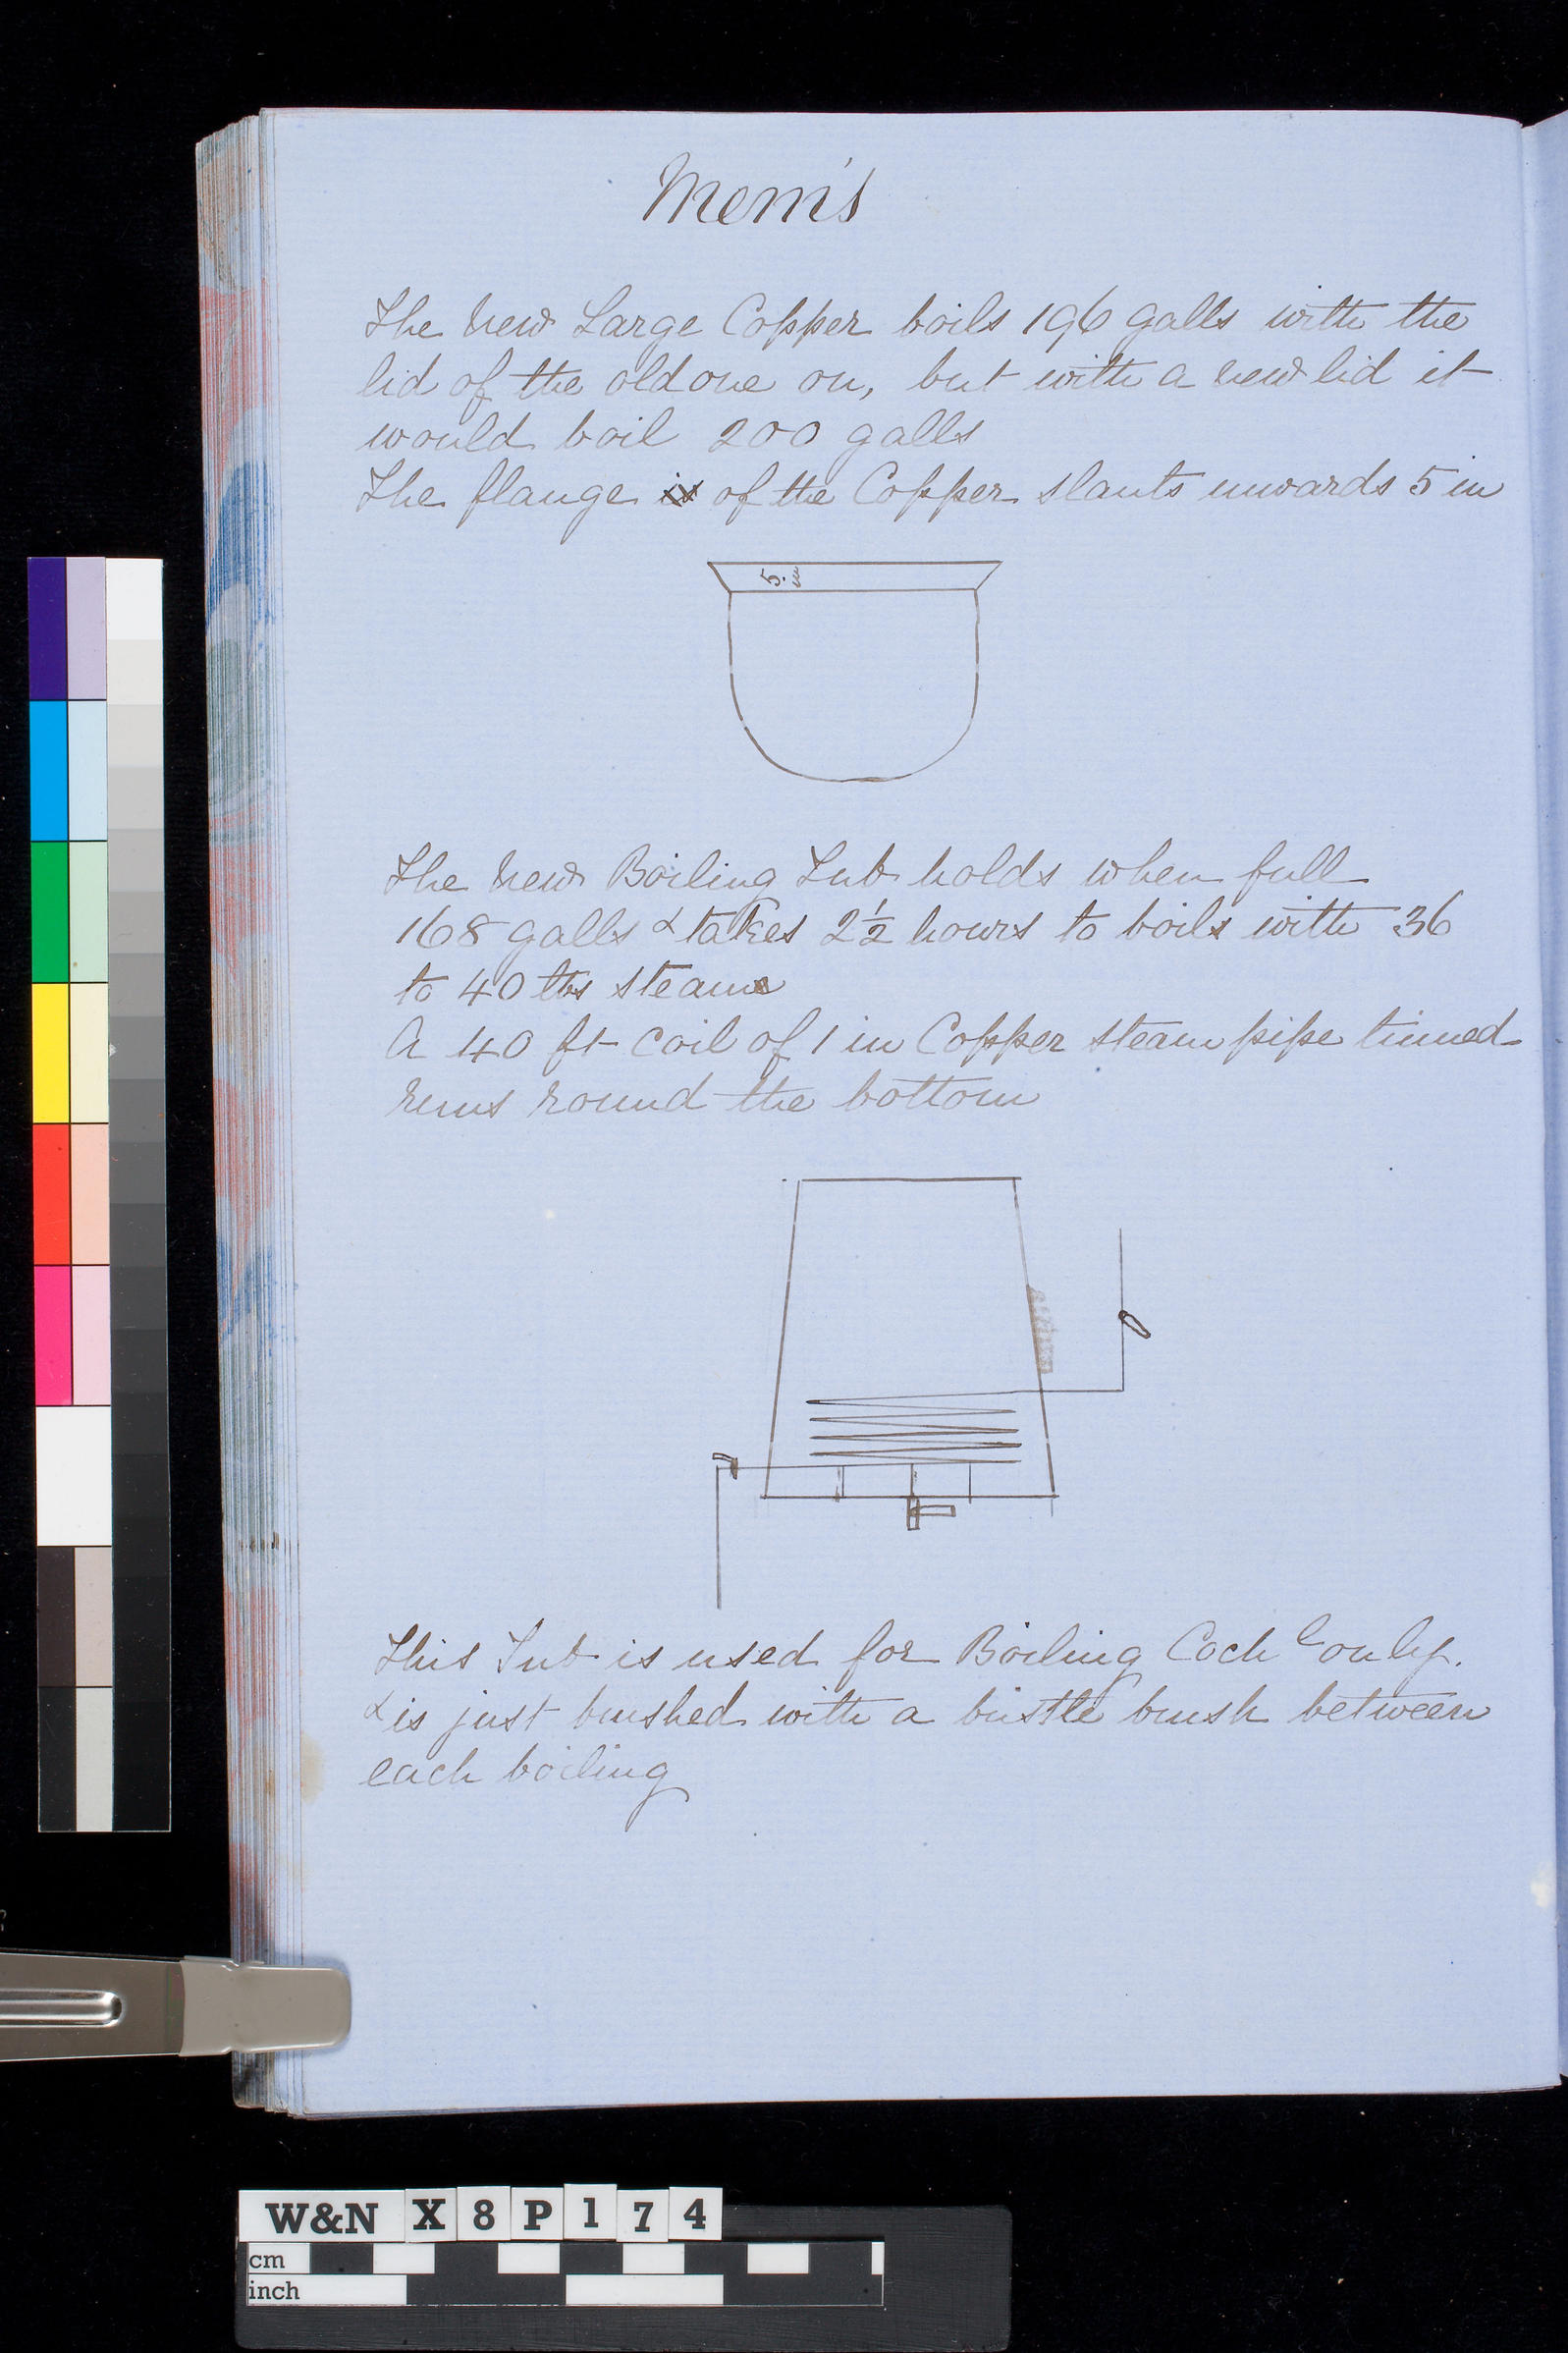 Mem's
The new Large Copper boils 196 galls with the
lid of the old one on, but with a new lid it
would boil 200 galls
The flange is of the Copper slants inwards 5 in
5. in
The new Boiling Tub holds when full
168 galls & takes 2½ hours to boils with 36
to 40 lbs steam
A 40 ft coil of 1 in Copper steam pipe tinned
runs round the bottom
This Tub is used for Boiling Coch l only.
& is just brushed with a bristle brush between
each boiling
W&N X 8 P 1 7 4
cm
inch